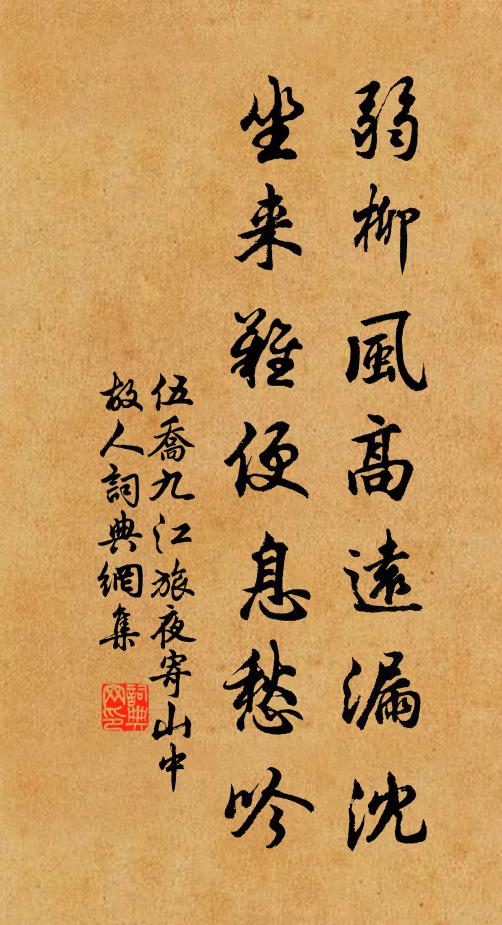 弱柳風高遠漏沈
坐来難便息愁吟
伍喬九江旅夜寄山中
故人詞典網集
詞典
网印